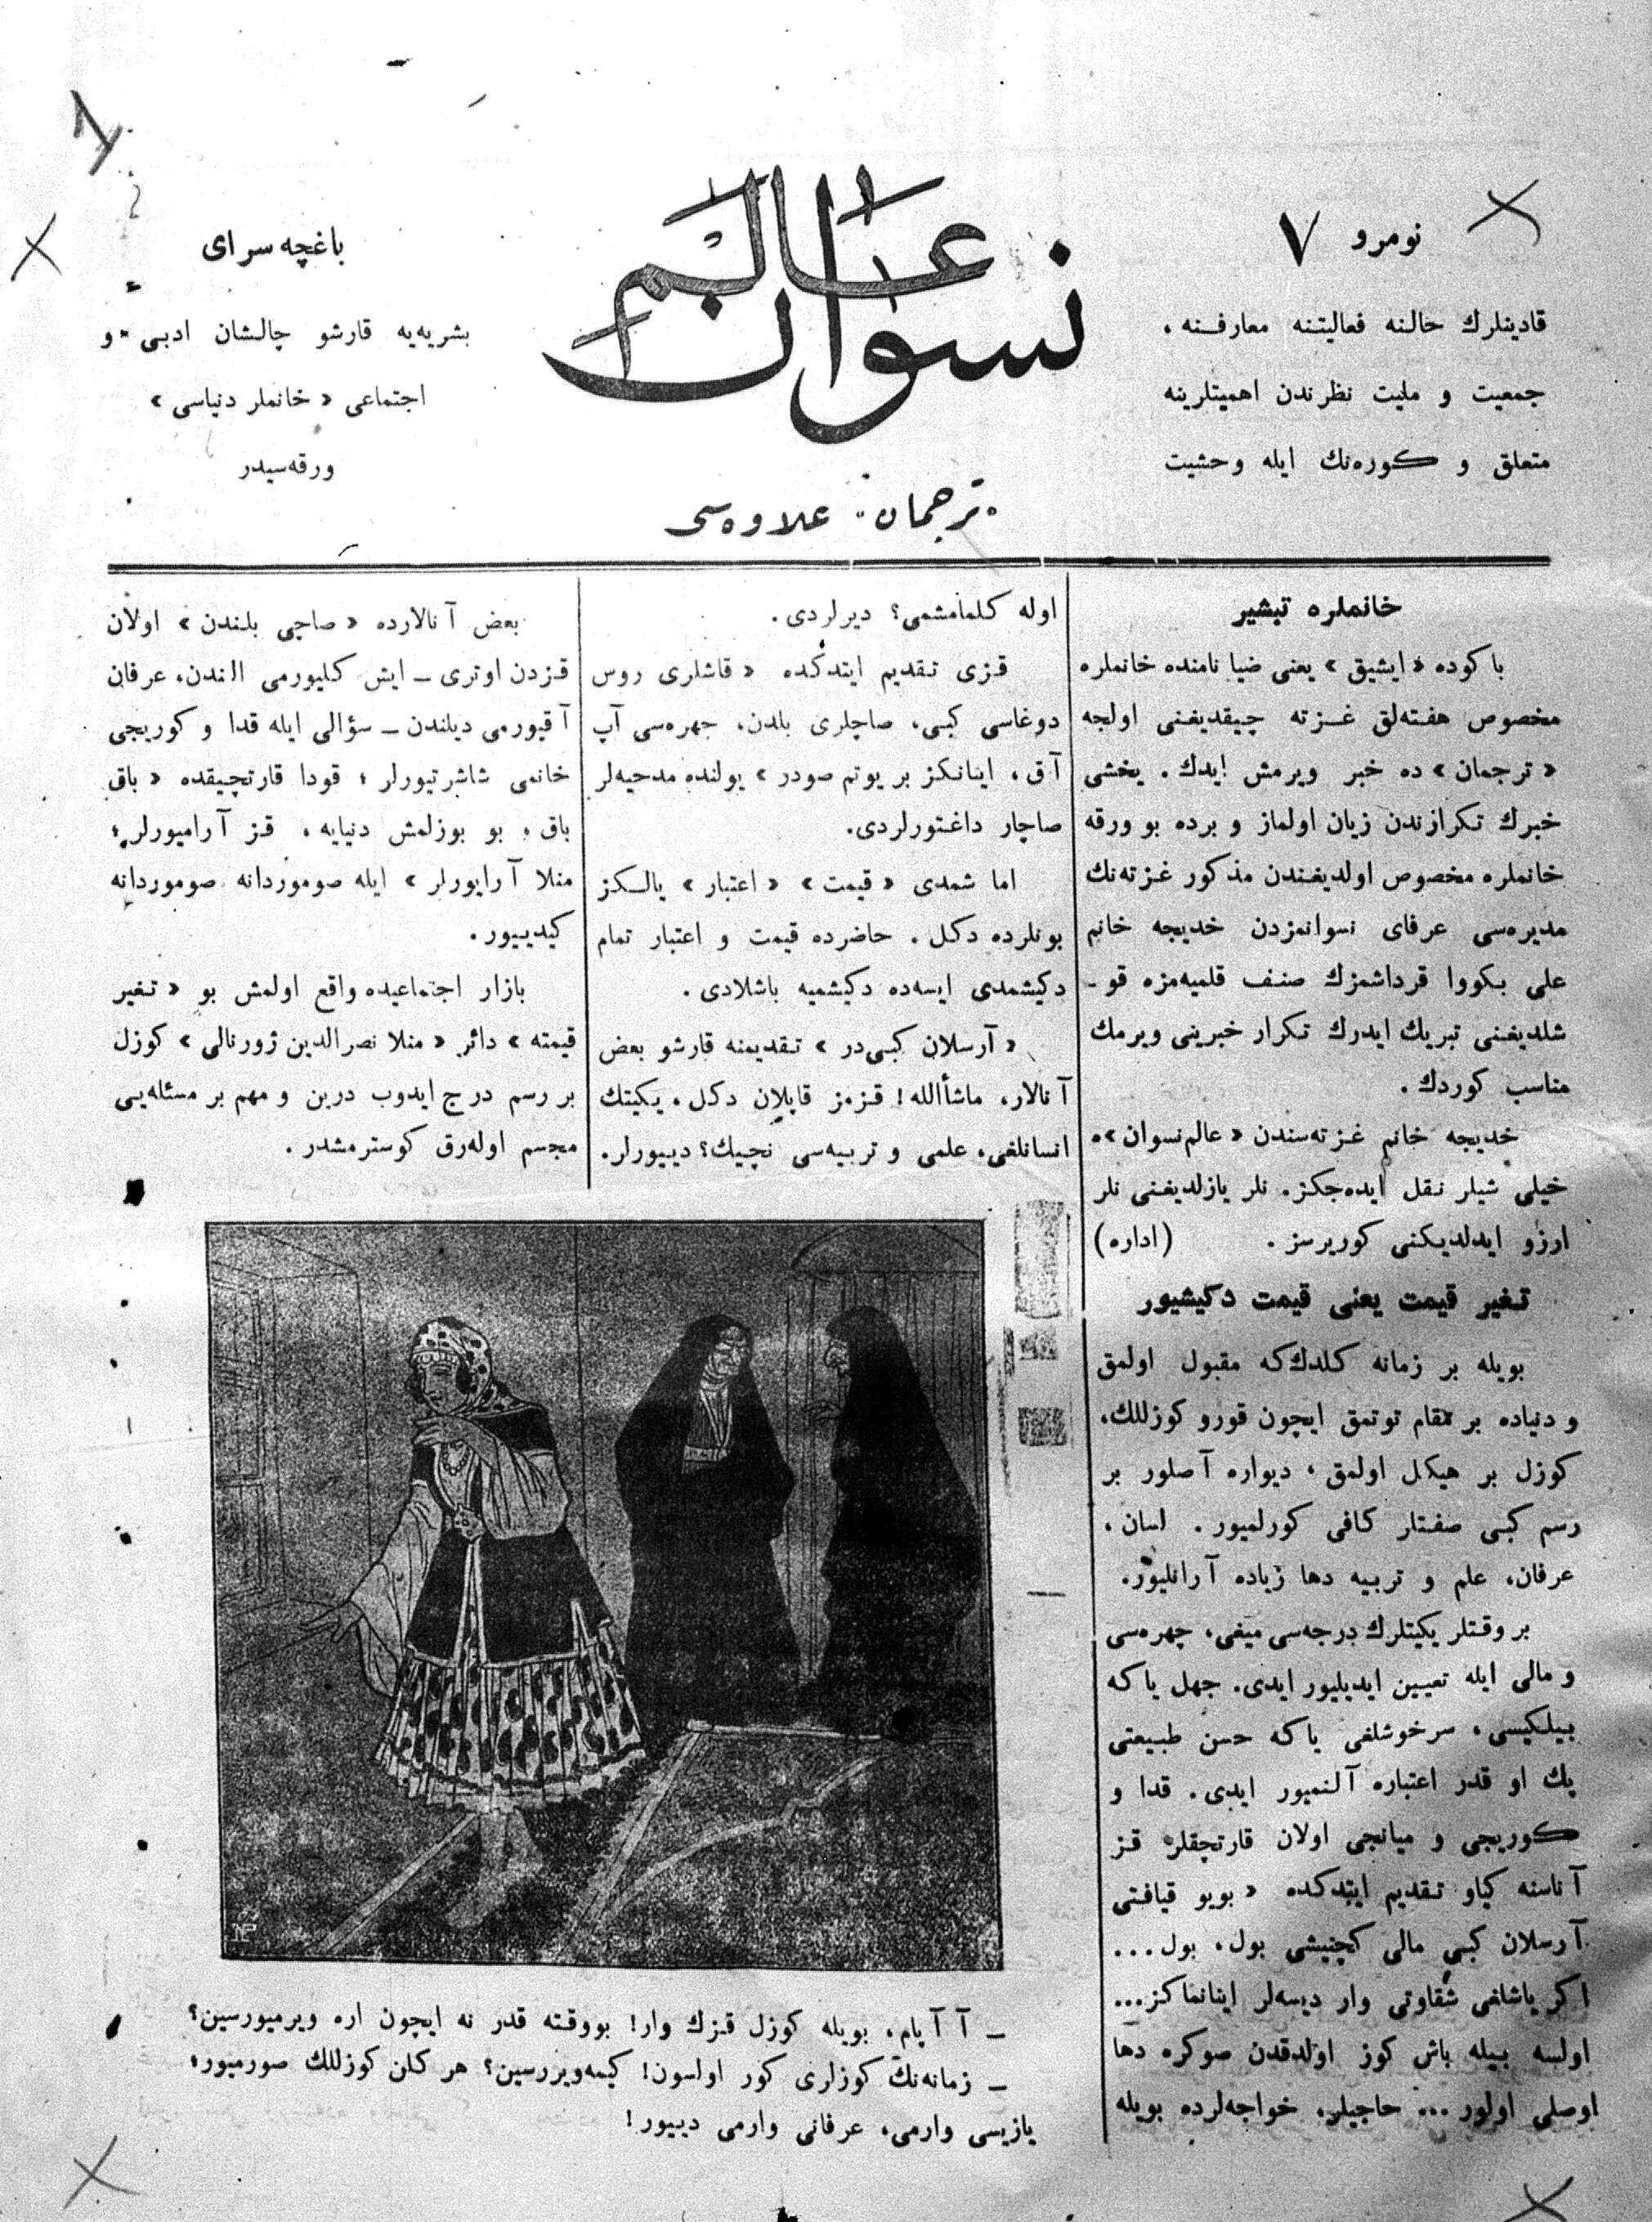 نومرو ٧
قادینلرك حالنه فعالیتنه معارفنه ،
جمعیت و ملیت نظرندن اهمیتلرینه
متعلق و كوره‌نك ایله وحشیت
عالم نسوان
«ترجمان» علاوه‌سی
باغچه سرای
بشریه‌یه قارشو چالشان ادبی و
اجتماعی « خانملر دنیاسی »
ورقه‌سیدر
خانملره تبشیر
باكوده « ایشیق » یعنی ضیا نامنده خانملره
مخصوص هفته‌لق غزته چیقدیغنی اولجه
« ترجمان » ده خبر ویرمش ایدك . یخشی
خبرك تكرازندن زیان اولماز و برده بو ورقه
خانملره مخصوص اولدیغندن مذكور غزته‌نك
مدیره‌سی عرفای نسوانمزدن خدیجه خانم
علی بكووا قرداشمزك صنف قلمیه‌مزه قو -
شلدیغنی تبریك ایدرك تكرار خبرینی ویرمك
مناسب كوردك .
خدیجه خانم غزته‌سندن « عالم نسوان »ه
خیلی شیلر نقل ایده‌جكز. نلر یازلدیغنی نلر
ارزو ایدلدیكنی كوریرسز . (اداره)
تغیر قیمت یعنی قیمت دكیشیور
بویله بر زمانه كلدك كه مقبول اولمق
و دنیاده بر مقام توتمق ایچون قورو كوزللك،
كوزل بر هیكل اولمق ، دیواره آصلور بر
رسم كبی صفتار كافی كورلمیور . لسان ،
عرفان، علم و تربیه دها زیاده آرانلیور.
بر وقتلر یكیتلرك درجه‌سی میغی، چهره‌سی
و مالی ایله تعیین ایدیلیور ایدی. جهل یا كه
بیلكیسی ، سرخوشلغی یا كه حسن طبیعتی
پك او قدر اعتباره آلنمیور ایدی . قدا و
كوریجی و میانجی اولان قارتچقلر قز
آناسنه كیاو تقدیم ایتدكده « بویو قیافتی
آرسلان كبی مالی كچنیشی بول، بول...
اكر یاشاغی شقاوتی وار دیسه‌لر اینانماكز...
اولسه بیله باش كوز اولدقدن صوكره دها
اوصلی اولور ... حاجیلر، خواجه‌لرده بویله
اوله كلمامشمی؟ دیرلردی .
قزی تقدیم ایتدكده « قاشلری روس
دوغاسی كبی، صاچلری بلدن، جهره‌سی آپ
آق ، اینانكز بر یوتم صودر » یولنده مدحیه‌لر
صاچار داغتورلردی.
اما شمدی « قیمت » « اعتبار » یالكز
بونلرده دكل . حاضرده قیمت و اعتبار تمام
دكیشمدی ایسه‌ده دكیشمیه باشلادی .
« آرسلان كبی‌در » تقدیمنه قارشو بعض
آنالار، ماشأالله! قزمز قاپلان دكل ، یكیتك
انسانلغی، علمی و تربیه‌سی نچیك؟ دییورلر.
بعض آنالارده « صاچی بلندن » اولان
قزدن اوتری ـ ایش كلیورمی الندن، عرفان
آقیورمی دیلندن ـ سؤالی ایله قدا و كوریجی
خانمی شاشرتیورلر ؛ قودا قارتچیقده « باق
باق ، بو بوزلمش دنیایه ، قز آرامیورلر؛
منلا آرایورلر » ایله صوموردانه صوموردانه
كیدییور .
بازار اجتماعیده واقع اولمش بو « تغیر
قیمته » دائر « منلا نصرالدین ژورنالی » كوزل
بر رسم درج ایدوب درین و مهم بر مسئله‌یی
مجسم اوله‌رق كوسترمشدر .
ـ آ آپام، بویله كوزل قزك وار! بووقته قدر نه ایچون اره ویرمیورسین؟
ـ زمانه‌نك كوزلری كور اولسون! كیمه‌ویررسین؟ هر كلن كوزللك صورمیور؛
یازیسی وارمی، عرفانی وارمی دییور!